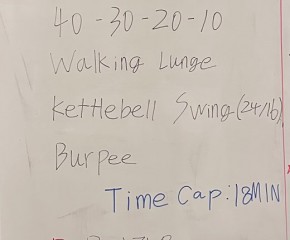 40 - 30 - 20 - 10
Walking Lunge
Kettlebell Swing (24/16)
Burpee
Time Cap: 18MIN